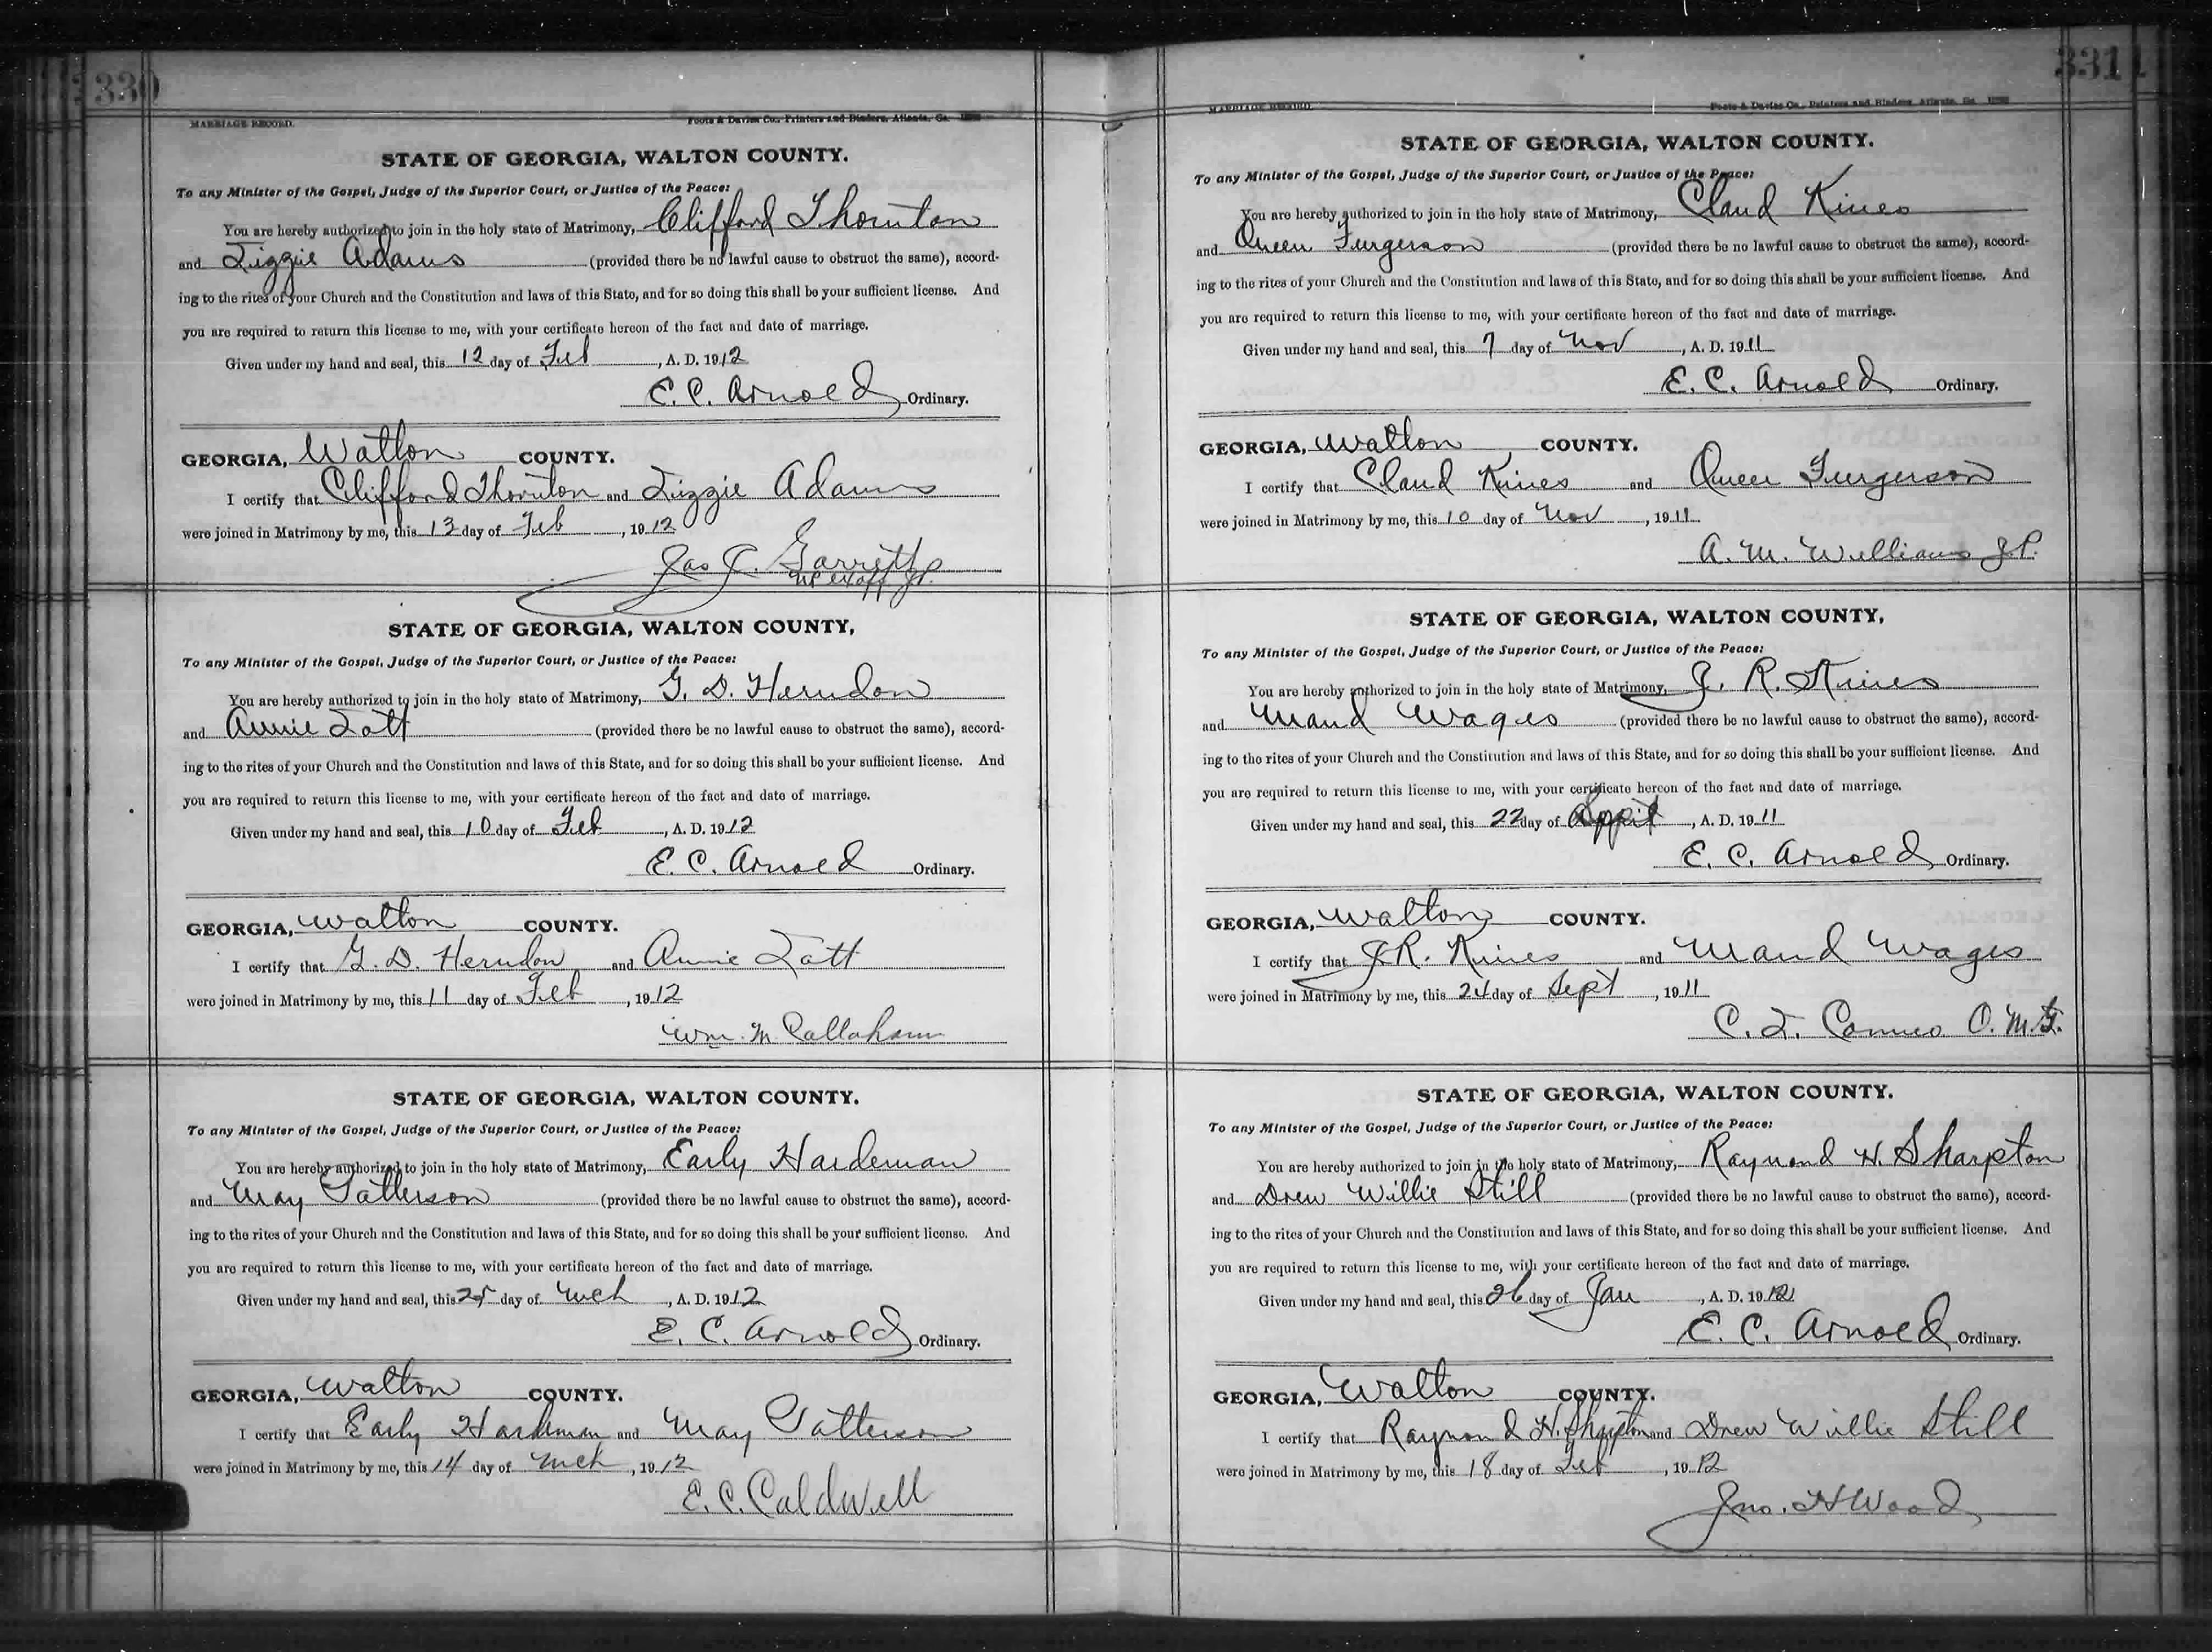 330
MARRIAGE RECORD.
Foote & Davies Co., Printers and Binders, Atlanta, Ga.
STATE OF GEORGIA, WALTON COUNTY.
To any Minister of the Gospel, Judge of the Superior Court, or Justice of the Peace:
You are hereby authorized to join in the holy state of Matrimony, Clifford Thornton
and Lizzie Adams (provided there be no lawful cause to obstruct the same), accord-
ing to the rites of your Church and the Constitution and laws of this State, and for so doing this shall be your sufficient license. And
you are required to return this license to me, with your certificate hereon of the fact and date of marriage.
Given under my hand and seal, this 12 day of Feb , A. D. 1912
E. C. Arnold Ordinary.
GEORGIA, Walton COUNTY.
I certify that Clifford Thornton and Lizzie Adams
were joined in Matrimony by me, this 13 day of Feb , 1912
Jas J. Garrett
NP exoff JP.
STATE OF GEORGIA, WALTON COUNTY,
To any Minister of the Gospel, Judge of the Superior Court, or Justice of the Peace:
You are hereby authorized to join in the holy state of Matrimony, G. D. Herndon
and Annie Lott (provided there be no lawful cause to obstruct the same), accord-
ing to the rites of your Church and the Constitution and laws of this State, and for so doing this shall be your sufficient license. And
you are required to return this license to me, with your certificate hereon of the fact and date of marriage.
Given under my hand and seal, this 10 day of Feb , A. D. 1912
E. C. Arnold Ordinary.
GEORGIA, Walton COUNTY.
I certify that G. D. Herndon and Annie Lott
were joined in Matrimony by me, this 11 day of Feb , 1912
Wm. M. Callaham
STATE OF GEORGIA, WALTON COUNTY.
To any Minister of the Gospel, Judge of the Superior Court, or Justice of the Peace:
You are hereby authorized to join in the holy state of Matrimony, Early Hardeman
and May Patterson (provided there be no lawful cause to obstruct the same), accord-
ing to the rites of your Church and the Constitution and laws of this State, and for so doing this shall be your sufficient license. And
you are required to return this license to me, with your certificate hereon of the fact and date of marriage.
Given under my hand and seal, this day of Mch , A. D. 1912
E. C. Arnold Ordinary.
GEORGIA, Walton COUNTY.
I certify that Early Hardeman and May Patterson
were joined in Matrimony by me, this 14 day of Mch , 1912
E. C. Caldwell
331
MARRIAGE RECORD.
Foote & Davies Co., Printers and Binders, Atlanta, Ga.
STATE OF GEORGIA, WALTON COUNTY.
To any Minister of the Gospel, Judge of the Superior Court, or Justice of the Peace:
You are hereby authorized to join in the holy state of Matrimony, Claud Kines
and Queen Furgerson (provided there be no lawful cause to obstruct the same), accord-
ing to the rites of your Church and the Constitution and laws of this State, and for so doing this shall be your sufficient license. And
you are required to return this license to me, with your certificate hereon of the fact and date of marriage.
Given under my hand and seal, this 7 day of Nov , A. D. 1911
E. C. Arnold Ordinary.
GEORGIA, Walton COUNTY.
I certify that Claud Kines and Queen Furgerson
were joined in Matrimony by me, this 10 day of Nov , 1911
A. M. Williams J.P.
STATE OF GEORGIA, WALTON COUNTY,
To any Minister of the Gospel, Judge of the Superior Court, or Justice of the Peace:
You are hereby authorized to join in the holy state of Matrimony, J. R. Kines
and Maud Wages (provided there be no lawful cause to obstruct the same), accord-
ing to the rites of your Church and the Constitution and laws of this State, and for so doing this shall be your sufficient license. And
you are required to return this license to me, with your certificate hereon of the fact and date of marriage.
Given under my hand and seal, this 22 day of , A. D. 1911
E. C. Arnold Ordinary.
GEORGIA, Walton COUNTY.
I certify that J. R. Kines and Maud Wages
were joined in Matrimony by me, this 24 day of Sept , 1911
C. T. O. M. G.
STATE OF GEORGIA, WALTON COUNTY.
To any Minister of the Gospel, Judge of the Superior Court, or Justice of the Peace:
You are hereby authorized to join in the holy state of Matrimony, Raymond H. Sharpton
and Drew Willie Still (provided there be no lawful cause to obstruct the same), accord-
ing to the rites of your Church and the Constitution and laws of this State, and for so doing this shall be your sufficient license. And
you are required to return this license to me, with your certificate hereon of the fact and date of marriage.
Given under my hand and seal, this 26 day of Jan , A. D. 1912
E. C. Arnold Ordinary.
GEORGIA, Walton COUNTY.
I certify that Raymond H. Sharpton and Drew Willie Still
were joined in Matrimony by me, this 18 day of Feb , 1912
Jno. H Wood